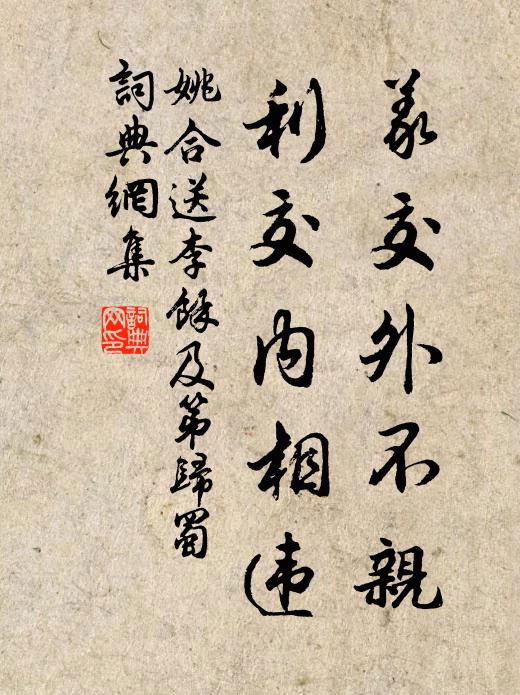 義交外不親
利交内相違
姚合送李餘及第歸蜀
詞典網集
詞典
网印